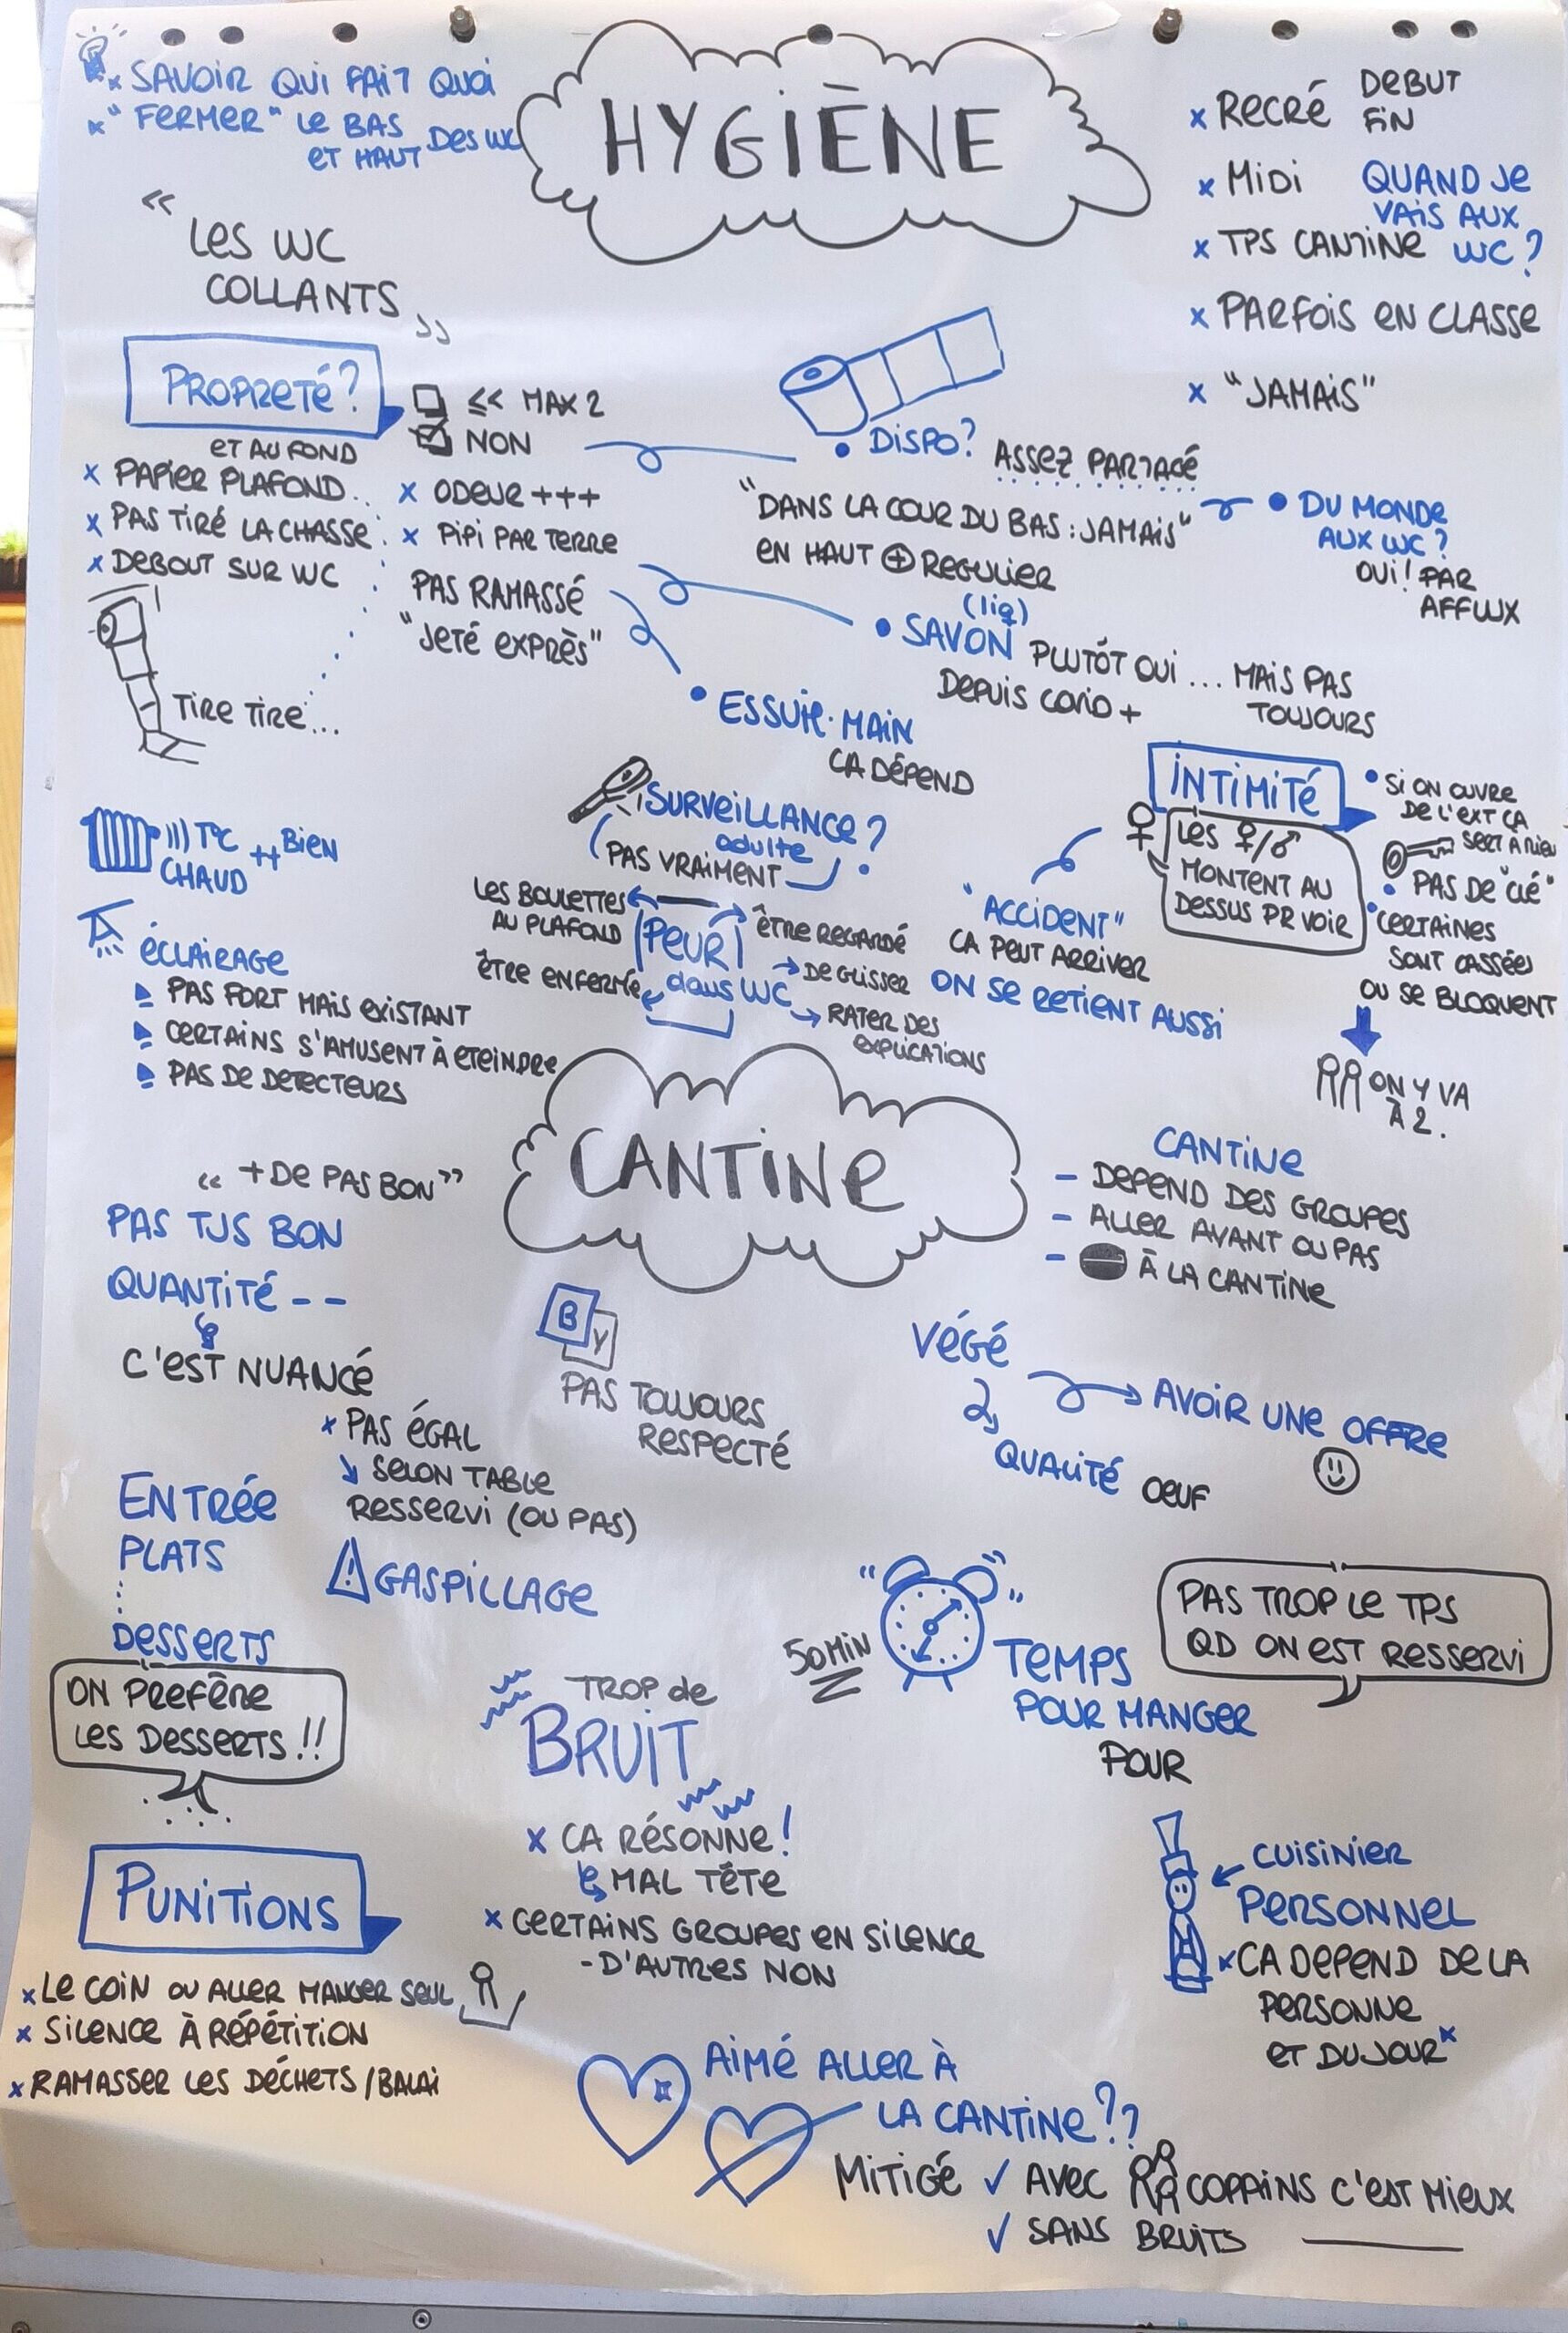 x SAVOIR QUI FAIT QUOI
x "FERMER" LE BAS
ET HAUT DES WC
HYGIÈNE
x RECRÉ DEBUT
FIN
x MIDI
QUAND JE
VAIS AUX
WC ?
x TPS CANTINE
x PARFOIS EN CLASSE
x "JAMAIS"
« LES WC
COLLANTS »
PROPRETÉ ?
<< MAX 2
NON
ET AU FOND
x PAPIER PLAFOND..
x PAS TIRÉ LA CHASSE
x DEBOUT SUR WC
x ODEUR +++
x PIPI PAR TERRE
PAS RAMASSÉ
"JETÉ EXPRÈS"
TIRE TIRE...
• DISPO ? ASSEZ PARTAGÉ
"DANS LA COUR DU BAS : JAMAIS"
EN HAUT + REGULIER
• DU MONDE
AUX WC ?
OUI ! PAR
AFFLUX
(liq)
• SAVON PLUTÔT OUI ... MAIS PAS
TOUJOURS
DEPUIS COVID +
• ESSUIE-MAIN
CA DÉPEND
T°C ++ BIEN
CHAUD
ÉCLAIRAGE
PAS FORT MAIS EXISTANT
CERTAINS S'AMUSENT À ETEINDRE
PAS DE DETECTEURS
SURVEILLANCE ?
adulte
(PAS VRAIMENT)
PEUR
dans WC
LES BOULETTES
AU PLAFOND
ÊTRE ENFERMÉ
ÊTRE REGARDÉ
DE GLISSER
RATER DES
EXPLICATIONS
INTIMITÉ
♀ LES ♀/♂
MONTENT AU
DESSUS PR VOIR
"ACCIDENT"
CA PEUT ARRIVER
ON SE RETIENT AUSSI
• SI ON OUVRE
DE L'EXT CA
SERT À RIEN
• PAS DE "CLÉ"
• CERTAINES
SONT CASSÉES
OU SE BLOQUENT
ON Y VA
À 2.
CANTINE
« + DE PAS BON »
PAS TJS BON
QUANTITÉ - -
C'EST NUANCÉ
x PAS ÉGAL
SELON TABLE
RESSERVI (OU PAS)
GASPILLAGE
B
Y
PAS TOUJOURS
RESPECTÉ
CANTINE
- DEPEND DES GROUPES
- ALLER AVANT OU PAS
- À LA CANTINE
VÉGÉ
AVOIR UNE OFFRE
QUALITÉ OEUF
ENTRÉE
PLATS
DESSERTS
ON PREFÈRE
LES DESSERTS !!
TROP de
BRUIT
x CA RÉSONNE !
MAL TÊTE
x CERTAINS GROUPES EN SILENCE
- D'AUTRES NON
50 MIN
TEMPS
POUR MANGER
POUR
PAS TROP LE TPS
QD ON EST RESSERVI
CUISINIER
PERSONNEL
x CA DEPEND DE LA
PERSONNE
ET DU JOUR x
PUNITIONS
x LE COIN OU ALLER MANGER SEUL
x SILENCE À RÉPÉTITION
x RAMASSER LES DÉCHETS / BALAI
AIMÉ ALLER À
LA CANTINE ??
MITIGÉ ✓ AVEC COPAINS C'EST MIEUX
✓ SANS BRUITS